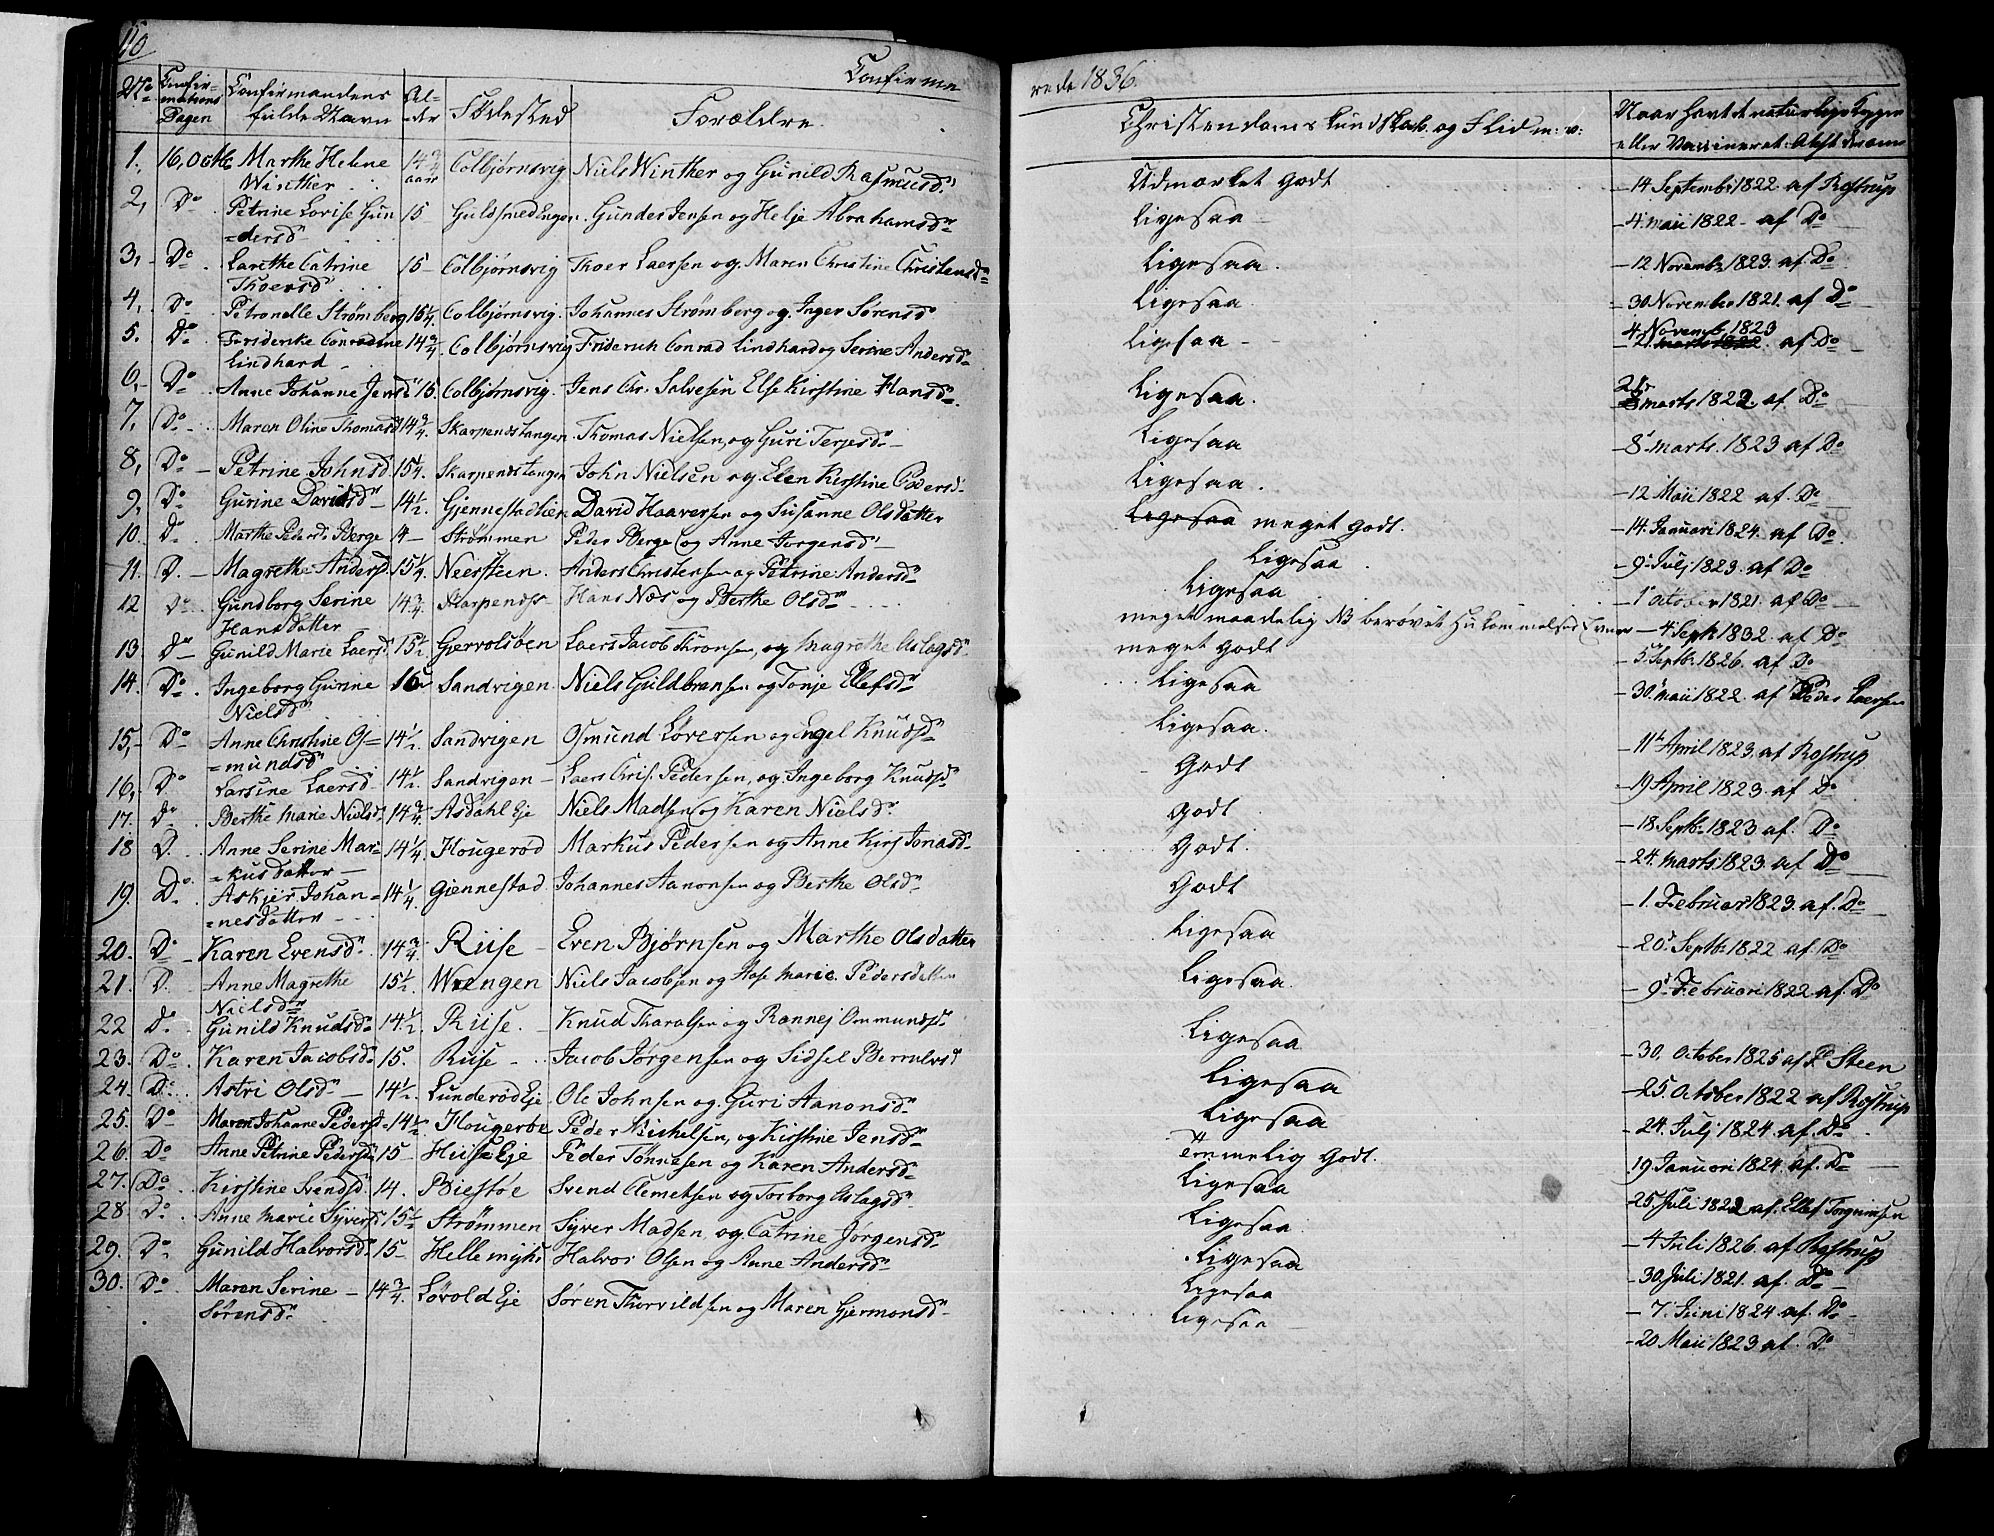 Confirme
No
Confir-
mations
Dagen
Confirmandens
fulde Navn
Al-
der
Fødested
Forældre
1. 16. Octbr Marthe Helene 14 3/4 aar Colbjørnsvig Niels Winther og Gunild Rasmusd.
Winther
2, Do Petrine Lovise Gun 15 Guldsmedengen. Gunder Jensen og Helje Abrahamsdr
=dersd
3, - Do Larethe Catrine 15 - Colbjørnsvig Thoer Laersen og Maren Christine Christensd
Thoersdr
4, Do Petronelle Strømberg 15 1/4. Colbjørnsvig. Johannes Strømberg og Inger Sørensd
5. Do Friderike Conradine 14 3/4. Colbjørnsvig Friderich Conrad Lindhard og Serine Andersd
Lindhard -
6, - Do Anne Johanne Jensd 15. Colbjørnsvig. Jens Chr. Salvesen Else Kirstine Hansd.
7, Do - Maren Oline Thomasd 14 3/4. Skarpenestangen. Thomas Nielsen, og Guri Terjesd -
8, Do - Petrine Johnsd. 15 1/4. Skarpenestangen John Nielsen og Elen Kirstine Pedersd.
9, Do Gurine Davidsd - 14 1/2. Gjennestadlien David Haaversen og Susanne Olsdatter
10. Do Marthe Pedersd Berge 14 - Strømmen Peder Berge og Anne Jørgensd -
11. D. - Magrethe Andersd. 15 1/4. Neersteen. Anders Christensen og Petrine Andersd
12 Do Gundborg Serine 14 3/4. Skarpenes - Hans Næs og Berthe Olsd
Hansdatter -
13. Do Gunild Marie Laersd. 15 1/2 Gjervolsøen Laers Jacob Thronsen, og Magrethe Aslagsd.
14. Do. Ingeborg Gurine 16 Sandvigen Niels Guldbransen og Tonje Ellefsd
Nielsd
15, - Do Anne Christine Os= 14 1/2. Sandvigen Osmund Løversen og Engel Knudsd
=mundsd
16, Do Larsine Laersd. 14 1/2. Sandvigen - Laers Chris. Pedersen, og Ingeborg Knudsd
17. Do Berthe Marie Nielsd 14 3/4. Asdahl Eje Niels Madsen og Karen Nielsd.
18 D. Anne Serine Mar= 14 1/4 Hougerød Markus Pedersen og Anne Kirs Jonasd
=kusdatter -
19. Do Askjer Johan= 14 1/4. Giennestad Johannes Aanonsen og Berthe Olsd
=nesdatter -
20. Do Karen Evensd. 14 3/4. Riise - Even Bjørnsen og Marthe Olsdatter
21. D. Anne Magrethe 15 1/2. Wrengen Niels Jacobsen og Marie Pedersdatter
Nielsd
22 Do. Gunild Knudsd 14 1/2. Riise. - Knud Tharalsen og Rannej Ommundsd.
23. Do. Karen Jacobsd. 15. Riise - Jacob Jørgensen og Sidsel
24. Do. Astri Olsd - 14 1/2. Lunderød Eje Ole Johnsen og Guri Aanonsd.
25. Do Maren Johanne Pedersd - 14 1/2. Hougerbe Peder Mickelsen, og Kirstine Jensd
26. Do Anne Petrine Pedersd 15 - Huise Eje Peder Tønnesen og Karen Andersd
27. Do. Kirstine Svendsd. 14. Biestøe Svend Clemetsen og Torborg Aslagsd
28. Do. Anne Marie Syversd 15 1/2 Strømmen Syver Madsen og Catrine Jørgensd.
29. Do Gunild Halvorsd 15 - Hellemyhr Halvor Olsen og Anne Andersd.
30. Do. Maren Serine - 14 3/4. Løvold Eje Søren Thorvildsen og Maren Gjermonsd
Sørensd
rede 1836.
Christendoms Kundskab og Flid m: v:
Naar havt de naturlige Kopper
eller Vaccineret
Udmærket Godt - 14 Septembr 1822. af Rostrup
Ligesaa - 4 maii 1822 - af Do
Ligesaa. - 12 Novembr 1823. af Do
Ligesaa. - 30 November 1821. af Do
4 Novemb. 1823
Ligesaa - - marts 1822. af Do
Ligesaa. marts 1822. af Do
Ligesaa - 8 marts. 1823 af Do
Ligesaa. - 12 Maii 1822 af. Do
Ligesaa meget Godt. - 14. Januari 1824. af Do
Ligesaa - 9 Julj 1823. af Do
Ligesaa - 1 October 1821. af Do
meget maadelig NB berøvet Hukommelses Evne - 4 Septb 1832. af Do
meget Godt - 5 Septbr 1826. af Do
Ligesaa - 30 maii 1822. af Peder Laersen
Ligesaa. - 11 April 1823. af Rostrup
Godt - 19 April 1823. af Do
Godt - 18 Septbr 1823 af. Do
Godt. - 24. marts 1823. af Do
Godt - 1. Februar 1823. af. Do
Ligesaa - 20 Septb 1822 af. Do
Ligesaa. - 9 Februari 1822. af. Do
Ligesaa - 30. October 1825 af P. Steen
Ligesaa - 25. October 1822 af Rostrup
Ligesaa - 24. Julj 1824. af. Do
Temmelig Godt. 19 Januari 1824. af. Do
Ligesaa 25 Juli 1822 af. Ellef Torgrimsen
Ligesaa - 4 Juli 1826. af Rostrup
Ligesaa - 30 Juli 1821. af. Do
Ligesaa - 7. Juni 1824. af. Do
Ligesaa - - 20 Maii 1823 af. Do